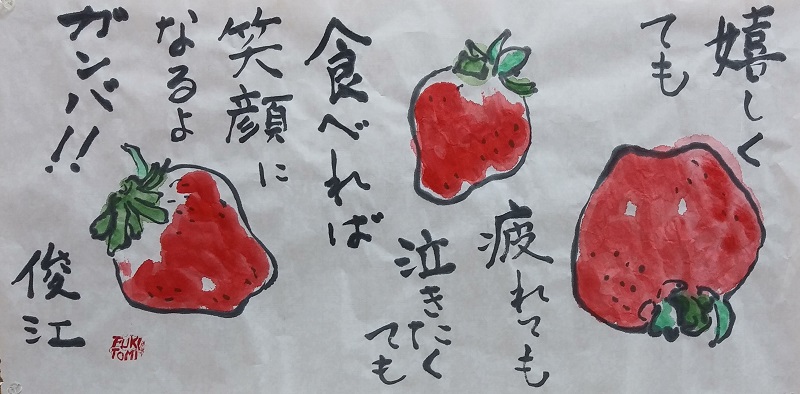 嬉しく
ても
疲れても
泣きたく
ても
食べれば
笑顔に
なるよ
ガンバ!!
俊江
FUKI
TOMI